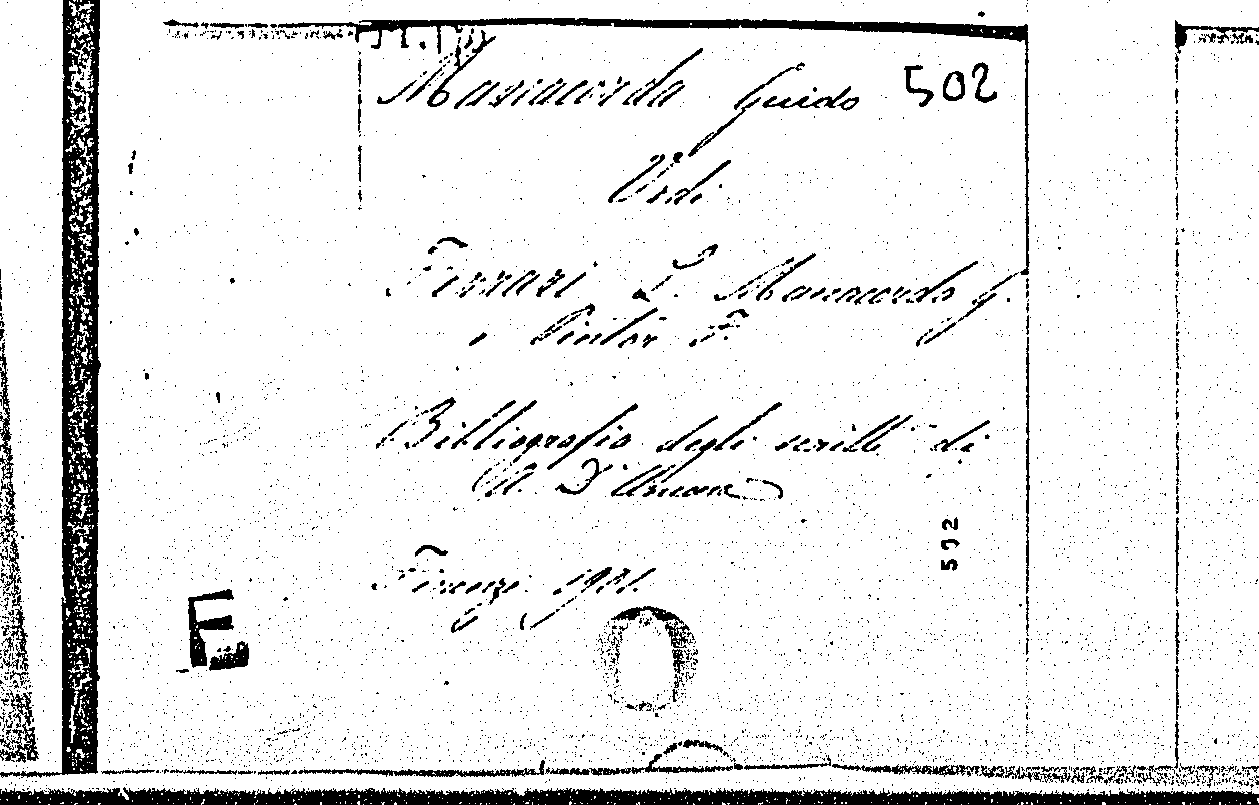 Manacorda Guido 502
Vedi
Ferrari L. Manacorda G.
e Pintor F.
Bibliografia degli scritti di
A. D'Ancona
Firenze 1901.
502